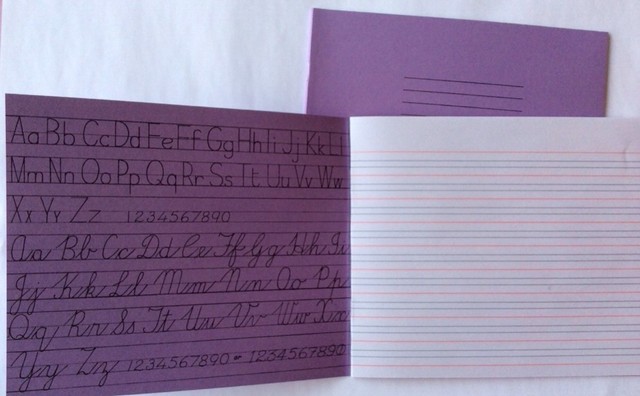 Aa Bb Cc Dd Ee Ff Gg Hh Ii Jj Kk Ll
Mm Nn Oo Pp Qq Rr Ss Tt Uu Vv Ww
Xx Yy Zz 1234567890
Aa Bb Cc Dd Ee Ff Gg Hh Ii
Jj Kk Ll Mm Nn Oo Pp
Qq Rr Ss Tt Uu Vv Ww Xx
Yy Zz 1234567890 - 1234567890